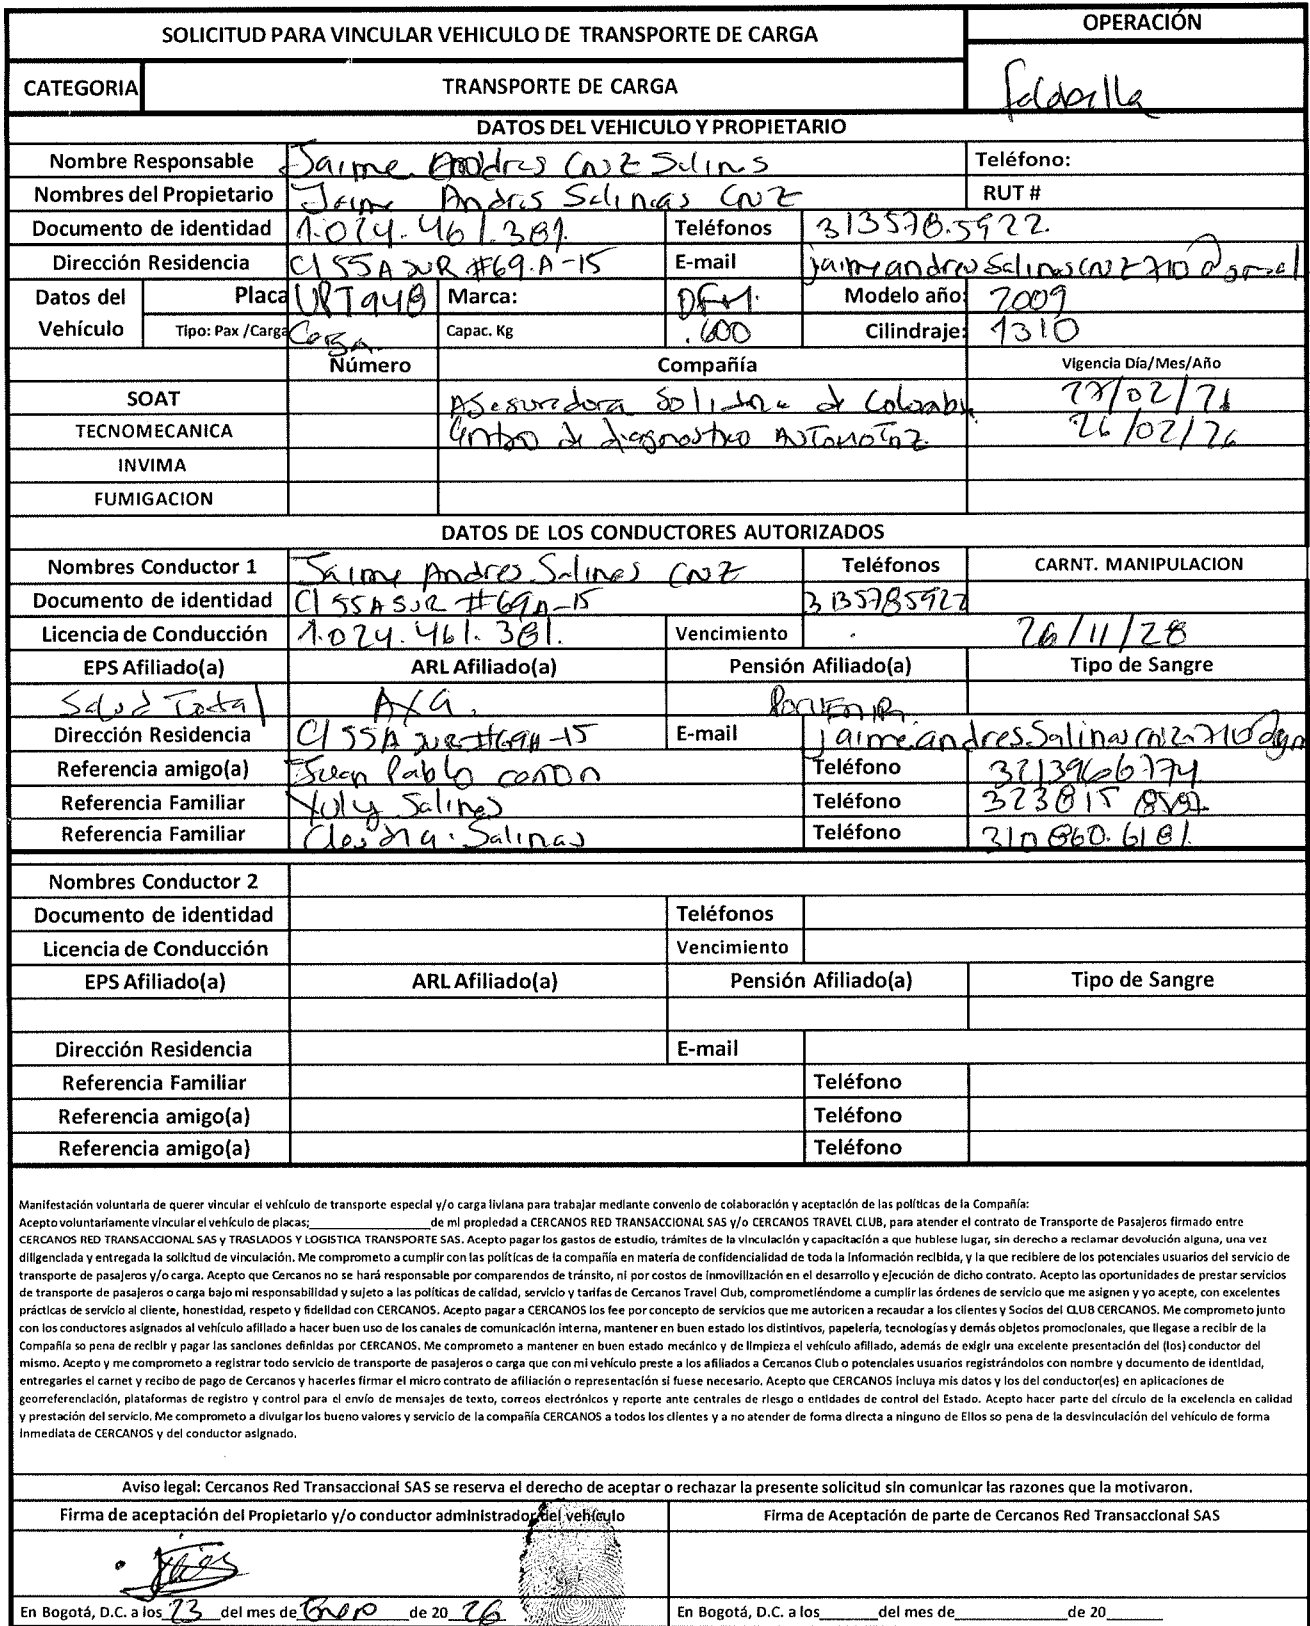 SOLICITUD PARA VINCULAR VEHICULO DE TRANSPORTE DE CARGA
OPERACIÓN
CATEGORIA TRANSPORTE DE CARGA
DATOS DEL VEHICULO Y PROPIETARIO
Nombre Responsable Jaime Andres Cruz Salinas Teléfono:
Nombres del Propietario Jaime Andres Salinas Cruz RUT #
Documento de identidad 1.024.461.381. Teléfonos 313578.5922.
Dirección Residencia Cl 55A SUR #69.A-15 E-mail jaimeandresSalinascruz710@gmail
Datos del Vehículo Placa UPT948 Marca: DFM. Modelo año: 2009
Tipo: Pax /Carga Carga. Capac. Kg .600 Cilindraje: 1310
Número Compañía Vigencia Día/Mes/Año
SOAT Aseguradora Solidaria de Colombia 27/02/26
TECNOMECANICA Centro de diagnostico AUTOMOTRIZ. 26/02/26
INVIMA
FUMIGACION
DATOS DE LOS CONDUCTORES AUTORIZADOS
Nombres Conductor 1 Jaime Andres Salinas Cruz Teléfonos CARNT. MANIPULACION
Documento de identidad Cl 55A SUR #69A-15 3135785922
Licencia de Conducción 1.024.461.381. Vencimiento 26/11/28
EPS Afiliado(a) ARL Afiliado(a) Pensión Afiliado(a) Tipo de Sangre
Salud Total AXA. PORVENIR.
Dirección Residencia Cl 55A SUR #69A-15 E-mail jaimeandresSalinascruz710@gm
Referencia amigo(a) Juan Pablo Teléfono 3213966774
Referencia Familiar Yuly Salinas Teléfono 323815
Referencia Familiar Claudia Salinas Teléfono 310 860.6181.
Nombres Conductor 2
Documento de identidad Teléfonos
Licencia de Conducción Vencimiento
EPS Afiliado(a) ARL Afiliado(a) Pensión Afiliado(a) Tipo de Sangre
Dirección Residencia E-mail
Referencia Familiar Teléfono
Referencia amigo(a) Teléfono
Referencia amigo(a) Teléfono
Manifestación voluntaria de querer vincular el vehículo de transporte especial y/o carga liviana para trabajar mediante convenio de colaboración y aceptación de las políticas de la Compañía:
Acepto voluntariamente vincular el vehículo de placas;____________________de mi propiedad a CERCANOS RED TRANSACCIONAL SAS y/o CERCANOS TRAVEL CLUB, para atender el contrato de Transporte de Pasajeros firmado entre
CERCANOS RED TRANSACCIONAL SAS y TRASLADOS Y LOGISTICA TRANSPORTE SAS. Acepto pagar los gastos de estudio, trámites de la vinculación y capacitación a que hubiese lugar, sin derecho a reclamar devolución alguna, una vez
diligenciada y entregada la solicitud de vinculación. Me comprometo a cumplir con las políticas de la compañía en materia de confidencialidad de toda la información recibida, y la que recibiere de los potenciales usuarios del servicio de
transporte de pasajeros y/o carga. Acepto que Cercanos no se hará responsable por comparendos de tránsito, ni por costos de inmovilización en el desarrollo y ejecución de dicho contrato. Acepto las oportunidades de prestar servicios
de transporte de pasajeros o carga bajo mi responsabilidad y sujeto a las políticas de calidad, servicio y tarifas de Cercanos Travel Club, comprometiéndome a cumplir las órdenes de servicio que me asignen y yo acepte, con excelentes
prácticas de servicio al cliente, honestidad, respeto y fidelidad con CERCANOS. Acepto pagar a CERCANOS los fee por concepto de servicios que me autoricen a recaudar a los clientes y Socios del CLUB CERCANOS. Me comprometo junto
con los conductores asignados al vehículo afiliado a hacer buen uso de los canales de comunicación interna, mantener en buen estado los distintivos, papelería, tecnologías y demás objetos promocionales, que llegase a recibir de la
Compañía so pena de recibir y pagar las sanciones definidas por CERCANOS. Me comprometo a mantener en buen estado mecánico y de limpieza el vehículo afiliado, además de exigir una excelente presentación del (los) conductor del
mismo. Acepto y me comprometo a registrar todo servicio de transporte de pasajeros o carga que con mi vehículo preste a los afiliados a Cercanos Club o potenciales usuarios registrándolos con nombre y documento de identidad,
entregarles el carnet y recibo de pago de Cercanos y hacerles firmar el micro contrato de afiliación o representación si fuese necesario. Acepto que CERCANOS incluya mis datos y los del conductor(es) en aplicaciones de
georreferenciación, plataformas de registro y control para el envío de mensajes de texto, correos electrónicos y reporte ante centrales de riesgo o entidades de control del Estado. Acepto hacer parte del círculo de la excelencia en calidad
y prestación del servicio. Me comprometo a divulgar los bueno valores y servicio de la compañía CERCANOS a todos los clientes y a no atender de forma directa a ninguno de Ellos so pena de la desvinculación del vehículo de forma
inmediata de CERCANOS y del conductor asignado.
Aviso legal: Cercanos Red Transaccional SAS se reserva el derecho de aceptar o rechazar la presente solicitud sin comunicar las razones que la motivaron.
Firma de aceptación del Propietario y/o conductor administrador del vehículo Firma de Aceptación de parte de Cercanos Red Transaccional SAS
En Bogotá, D.C. a los 23 del mes de Enero de 20 26 En Bogotá, D.C. a los______del mes de____________de 20______